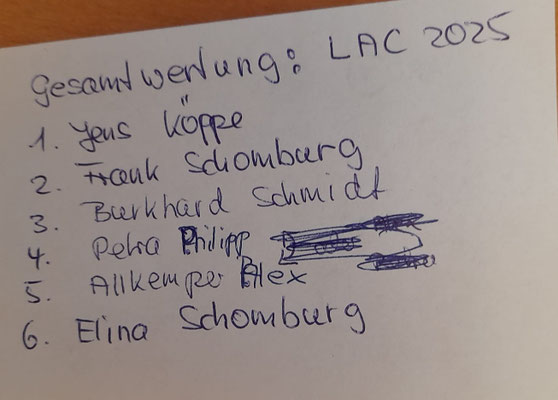 Gesamtwertung: LAC 2025
1. Jens Köppe
2. Frank Schomburg
3. Burkhard Schmidt
4. Petra Philipp
5. Allkemper Alex
6. Elina Schomburg